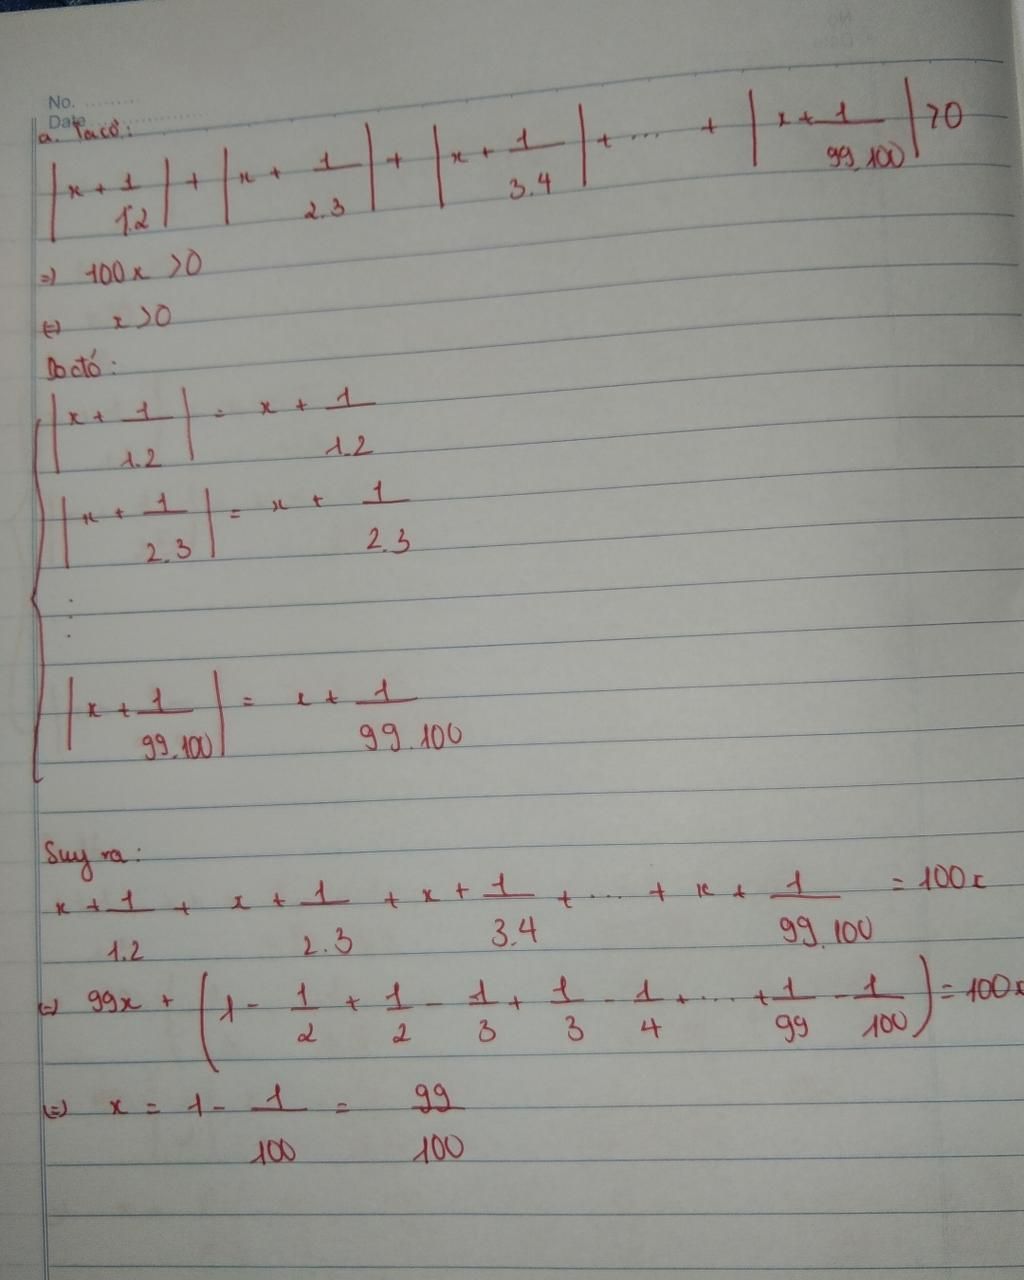 No. ..........
Date ..........
a. Ta có:
|x + 1/1.2| + |x + 1/2.3| + |x + 1/3.4| + ... + |x + 1/99.100| > 0
=> 100x > 0
<=> x > 0
Do đó:
|x + 1/1.2| = x + 1/1.2
|x + 1/2.3| = x + 1/2.3
⋮
|x + 1/99.100| = x + 1/99.100
Suy ra:
x + 1/1.2 + x + 1/2.3 + x + 1/3.4 + ... + x + 1/99.100 = 100x
<=> 99x + (1 - 1/2 + 1/2 - 1/3 + 1/3 - 1/4 + ... + 1/99 - 1/100) = 100x
<=> x = 1 - 1/100 = 99/100